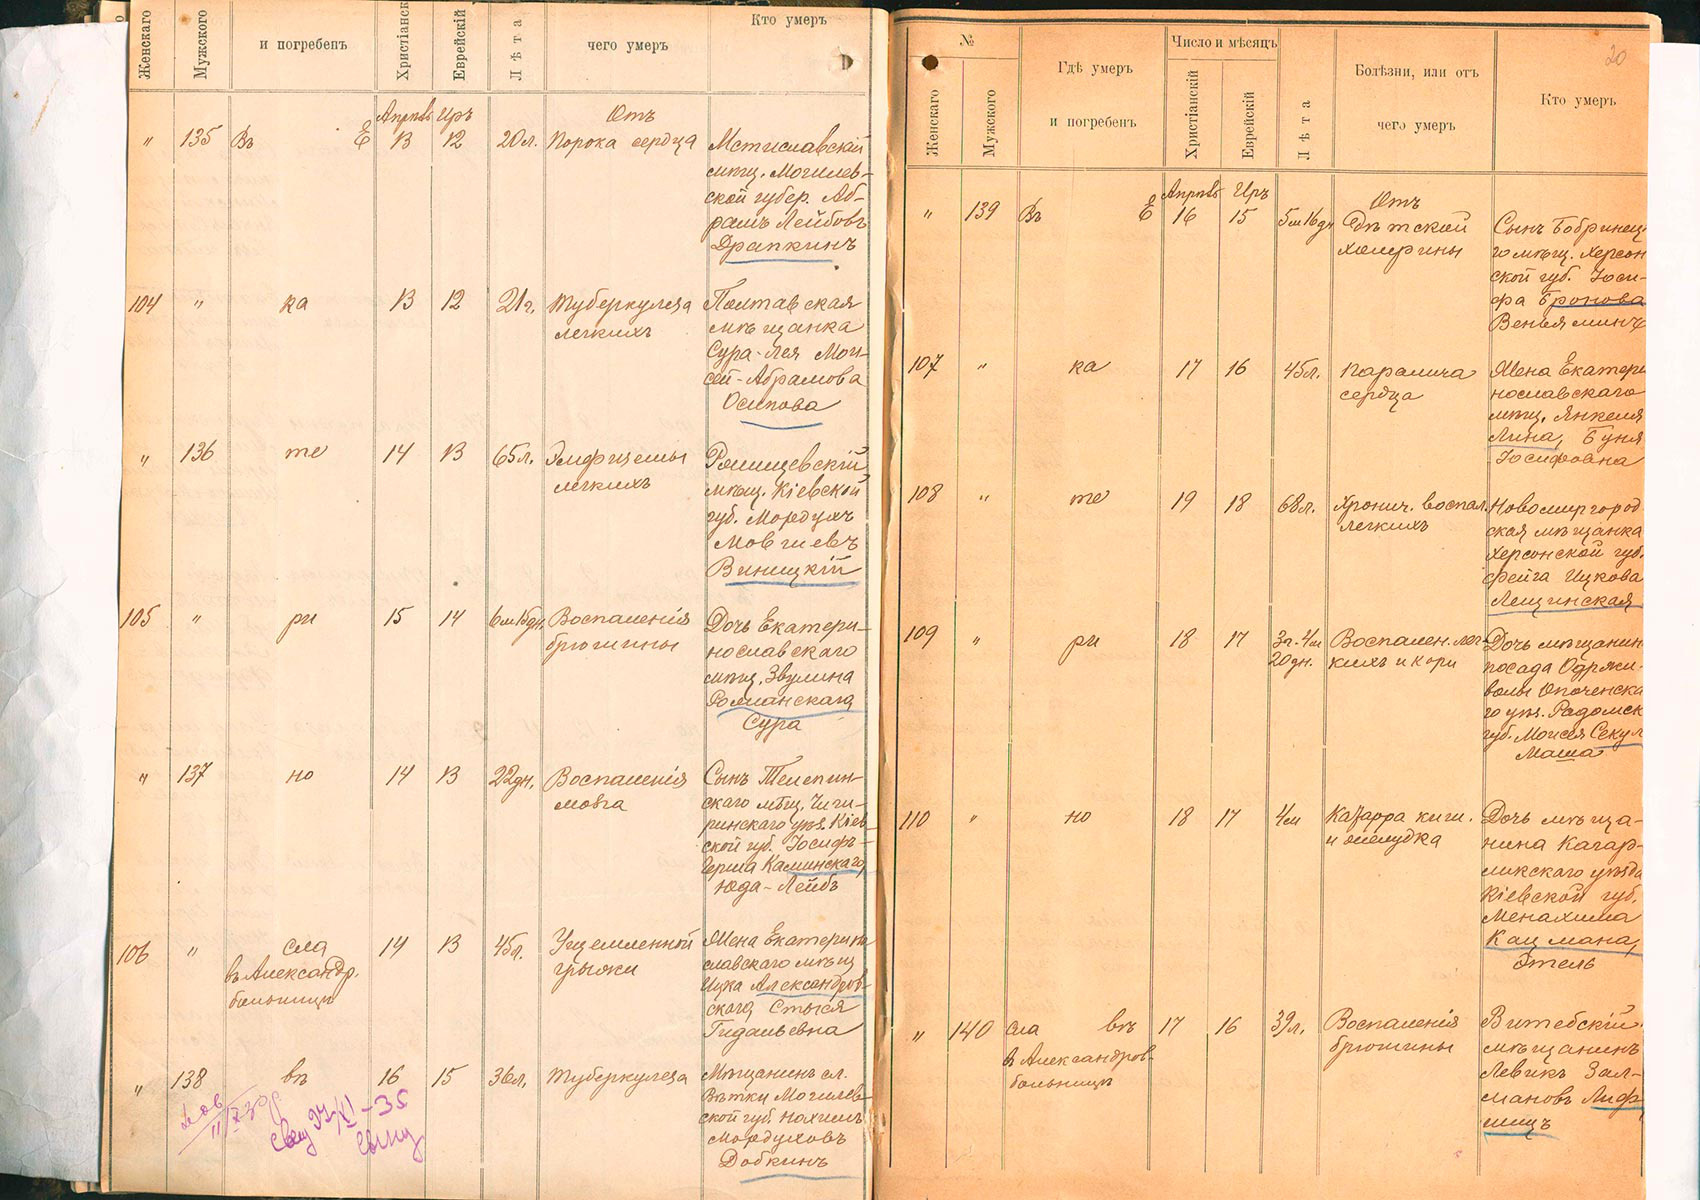 Женскаго
Мужского
и погребенъ
Христіанск
Еврейскій
Лѣта
чего умеръ
Кто умеръ
Апрѣль Иръ
Отъ
" 135 Въ Е 13 12 20л. Порока сердца
Мстиславскій
мѣщ. Могилев-
ской губер. Аб-
рамъ Лейбовъ
Драпкинъ
104 " ка 13 12 21г. Туберкулеза
легкихъ
Полтавская
мѣщанка
Сура-Лея Мои-
сей-Абрамова
Осипова
" 136 те 14 13 65л. Эмфиземы
легкихъ
мѣщ. Кіевской
губ. Мордухъ
Мовшевъ
Виницкій
105 " ри 15 14 6м15дн. Воспаленія
брюшины
Дочь Екатери-
нославскаго
мѣщ. Звулина
Романскаго
Сура
" 137 но 14 13 22дн. Воспаленія
мозга
Сынъ Телепин-
скаго мѣщ. Чиги-
ринскаго уѣз. Кіев-
ской губ. Іосифъ-
Герша Каминскаго,
Юда-Лейбъ
106 " сла 14 13 45л. Ущемленной
грыжи
въ Александр.
больницѣ
Жена Екатерино
славскаго мѣщ
Ицка Александров-
скаго, Стыся
Гидальевна
" 138 въ 16 15 36л. Туберкулеза
Мѣщанинъ сл.
Вѣтки Могилев-
ской губ. Нахимъ
Мордуховъ
Добкинъ
20
№
Женскаго
Мужского
Гдѣ умеръ
и погребенъ
Число и мѣсяцъ
Христіанскій
Еврейскій
Лѣта
Болѣзни, или отъ
чего умеръ
Кто умеръ
Апрѣль Иръ
Отъ
" 139 Въ Е 16 15 5м16дн Дѣтской
холерины
Сынъ Бобринец-
го мѣщ. Херсон
ской губ. Іоси-
фа Бронова
Веньяминъ
107 " ка 17 16 45л. Паралича
сердца
Жена Екатери
нославскаго
мѣщ. Янкеля
Лина, Буня
Іосифовна
108 " те 19 18 68л. Хронич. воспал.
легкихъ
Новомиргород
ская мѣщанка
Херсонской губ.
Фейга Ицкова
Лещинская
109 " ри 18 17 3г.4м
20дн. Воспален. лег-
кихъ и кори
Дочь мѣщанин
посада Одржи-
волы Опоченска
го уѣз. Радомск
губ. Моисея Секул
Маша
110 " но 18 17 4м Катарра киш.
и желудка
Дочь мѣща-
нина Кагар-
ликскаго уѣзда
Кіевской губ.
Менахима
Кацмана,
Этель
" 140 сла въ 17 16 39л. Воспаленія
брюшины
в Александров-
больницѣ
Витебскій
мѣщанинъ
Левикъ Зал-
мановъ Лиф
шицъ